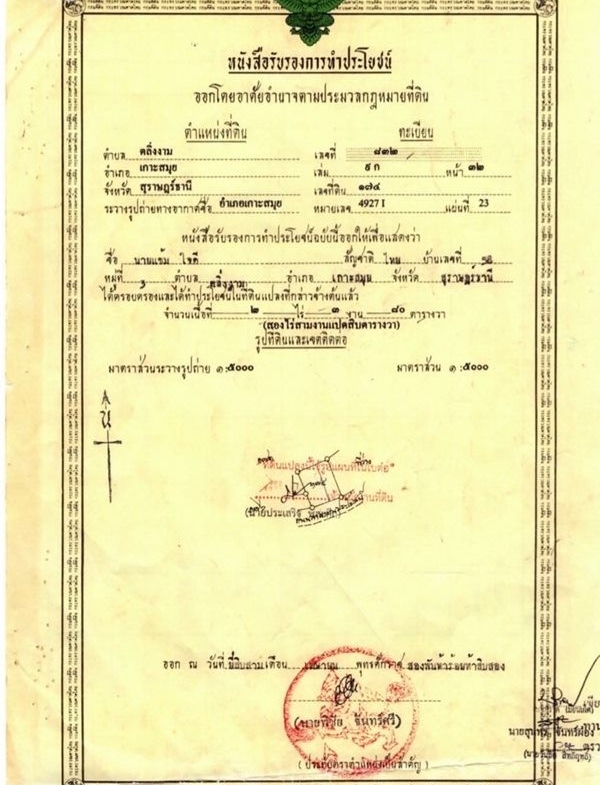 หนังสือรับรองการทำประโยชน์
ออกโดยอาศัยอำนาจตามประมวลกฎหมายที่ดิน
ตำแหน่งที่ดิน ทะเบียน
ตำบล ตลิ่งงาม เลขที่ ๘๓๒
อำเภอ เกาะสมุย เล่ม ๙ ก หน้า ๓๒
จังหวัด สุราษฎร์ธานี เลขที่ดิน ๑๗๔
ระวางรูปถ่ายทางอากาศชื่อ อำเภอเกาะสมุย หมายเลข 4927 I แผ่นที่ 23
หนังสือรับรองการทำประโยชน์ฉบับนี้ออกให้เพื่อแสดงว่า
ชื่อ นายแช่ม ใจดี สัญชาติ ไทย บ้านเลขที่
หมู่ที่ 3 ตำบล ตลิ่งงาม อำเภอ เกาะสมุย จังหวัด สุราษฎร์ธานี
ได้ครอบครองและได้ทำประโยชน์ในที่ดินแปลงที่กล่าวข้างต้นแล้ว
จำนวนเนื้อที่ ๒ ไร่ ๓ งาน ๘๐ ตารางวา
(สองไร่สามงานแปดสิบตารางวา)
รูปที่ดินและเขตติดต่อ
มาตราส่วนระวางรูปถ่าย ๑:๕๐๐๐ มาตราส่วน ๑:๕๐๐๐
น
ที่ดินแปลงนี้ใช้รูปแผนที่ใบต่อ
(นายประเสริฐ
ออก ณ วันที่ ยี่สิบสาม เดือน เมษายน พุทธศักราช สองพันห้าร้อยห้าสิบสอง
จันทร์ศรี)
(ประทับตราตำแหน่งเป็นสำคัญ)